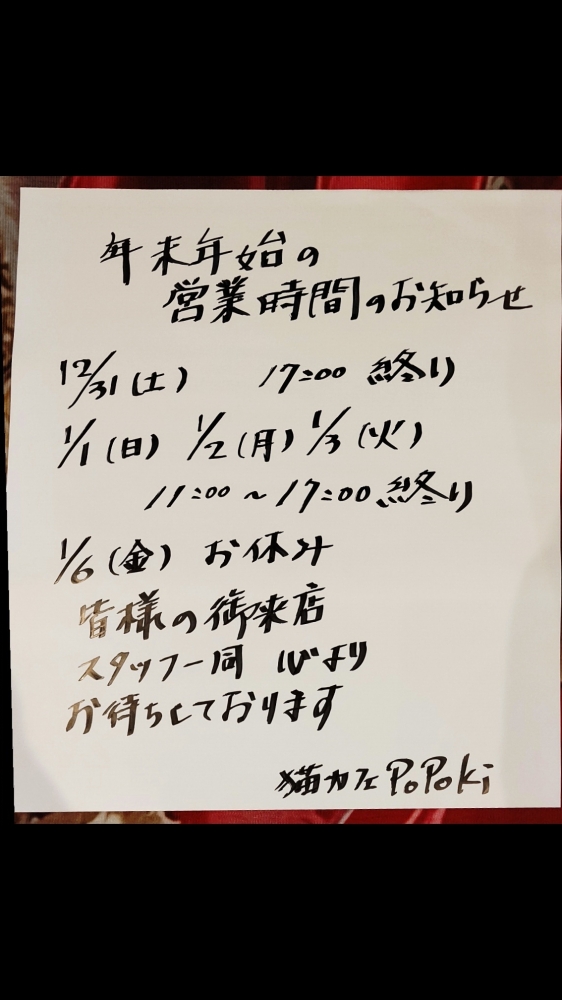 年末年始の
営業時間のお知らせ
12/31(土) 17:00 終り
1/1(日) 1/2(月) 1/3(火)
11:00~17:00 終り
1/6(金) お休み
皆様の御来店
スタッフ一同 心より
お待ちしております
猫カフェ PoPoki